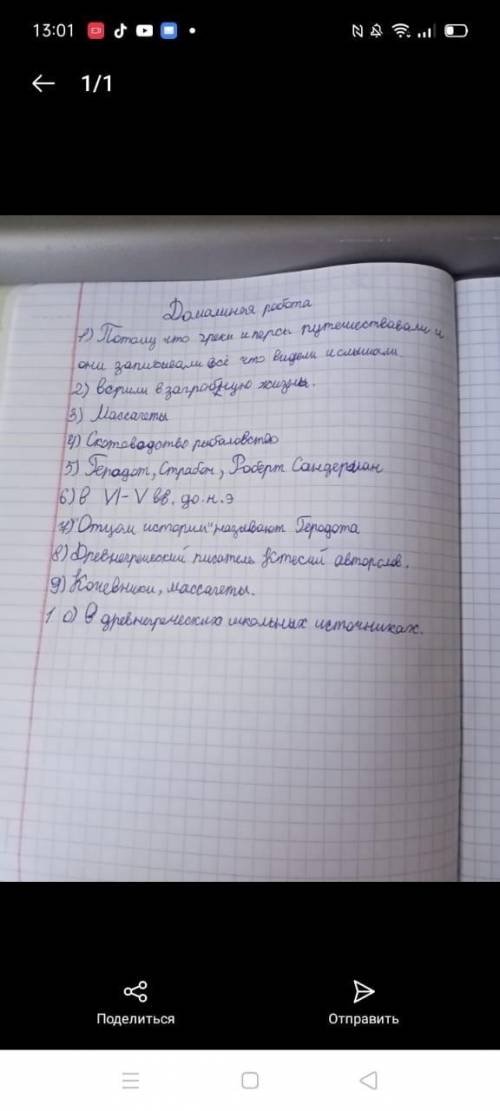 13:01
1/1
Домашняя работа
1) Потому что греки и персы путешествавали и
они записывали всё что видели и слышали.
2) верили в загробную жизнь.
3) Массагеты
4) Скотоводство рыбаловство
5) Герадот, Страбон, Роберт Сандерман
6) в VI-V вв. до.н.э
7) "Отцом истории" называют Геродота
8) Древнегреческий писатель Ктесий
9) Кочевники, массагеты.
10) В древнегреческих школьных источниках.
Поделиться
Отправить